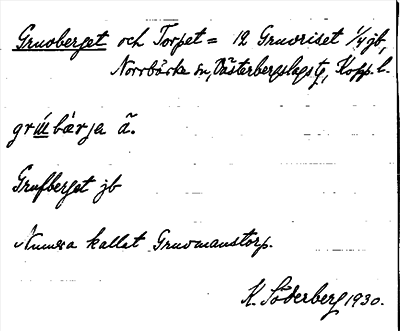 Gruvberget och Torpet = 12 Gruvriset 1/4 jb,
Norrbärke sn, Västerbergslags tg, Kopp. l.
grúvbärja ã.
Grufberget jb
Numera kallat Gruvmanstorp.
K. Söderberg 1930.